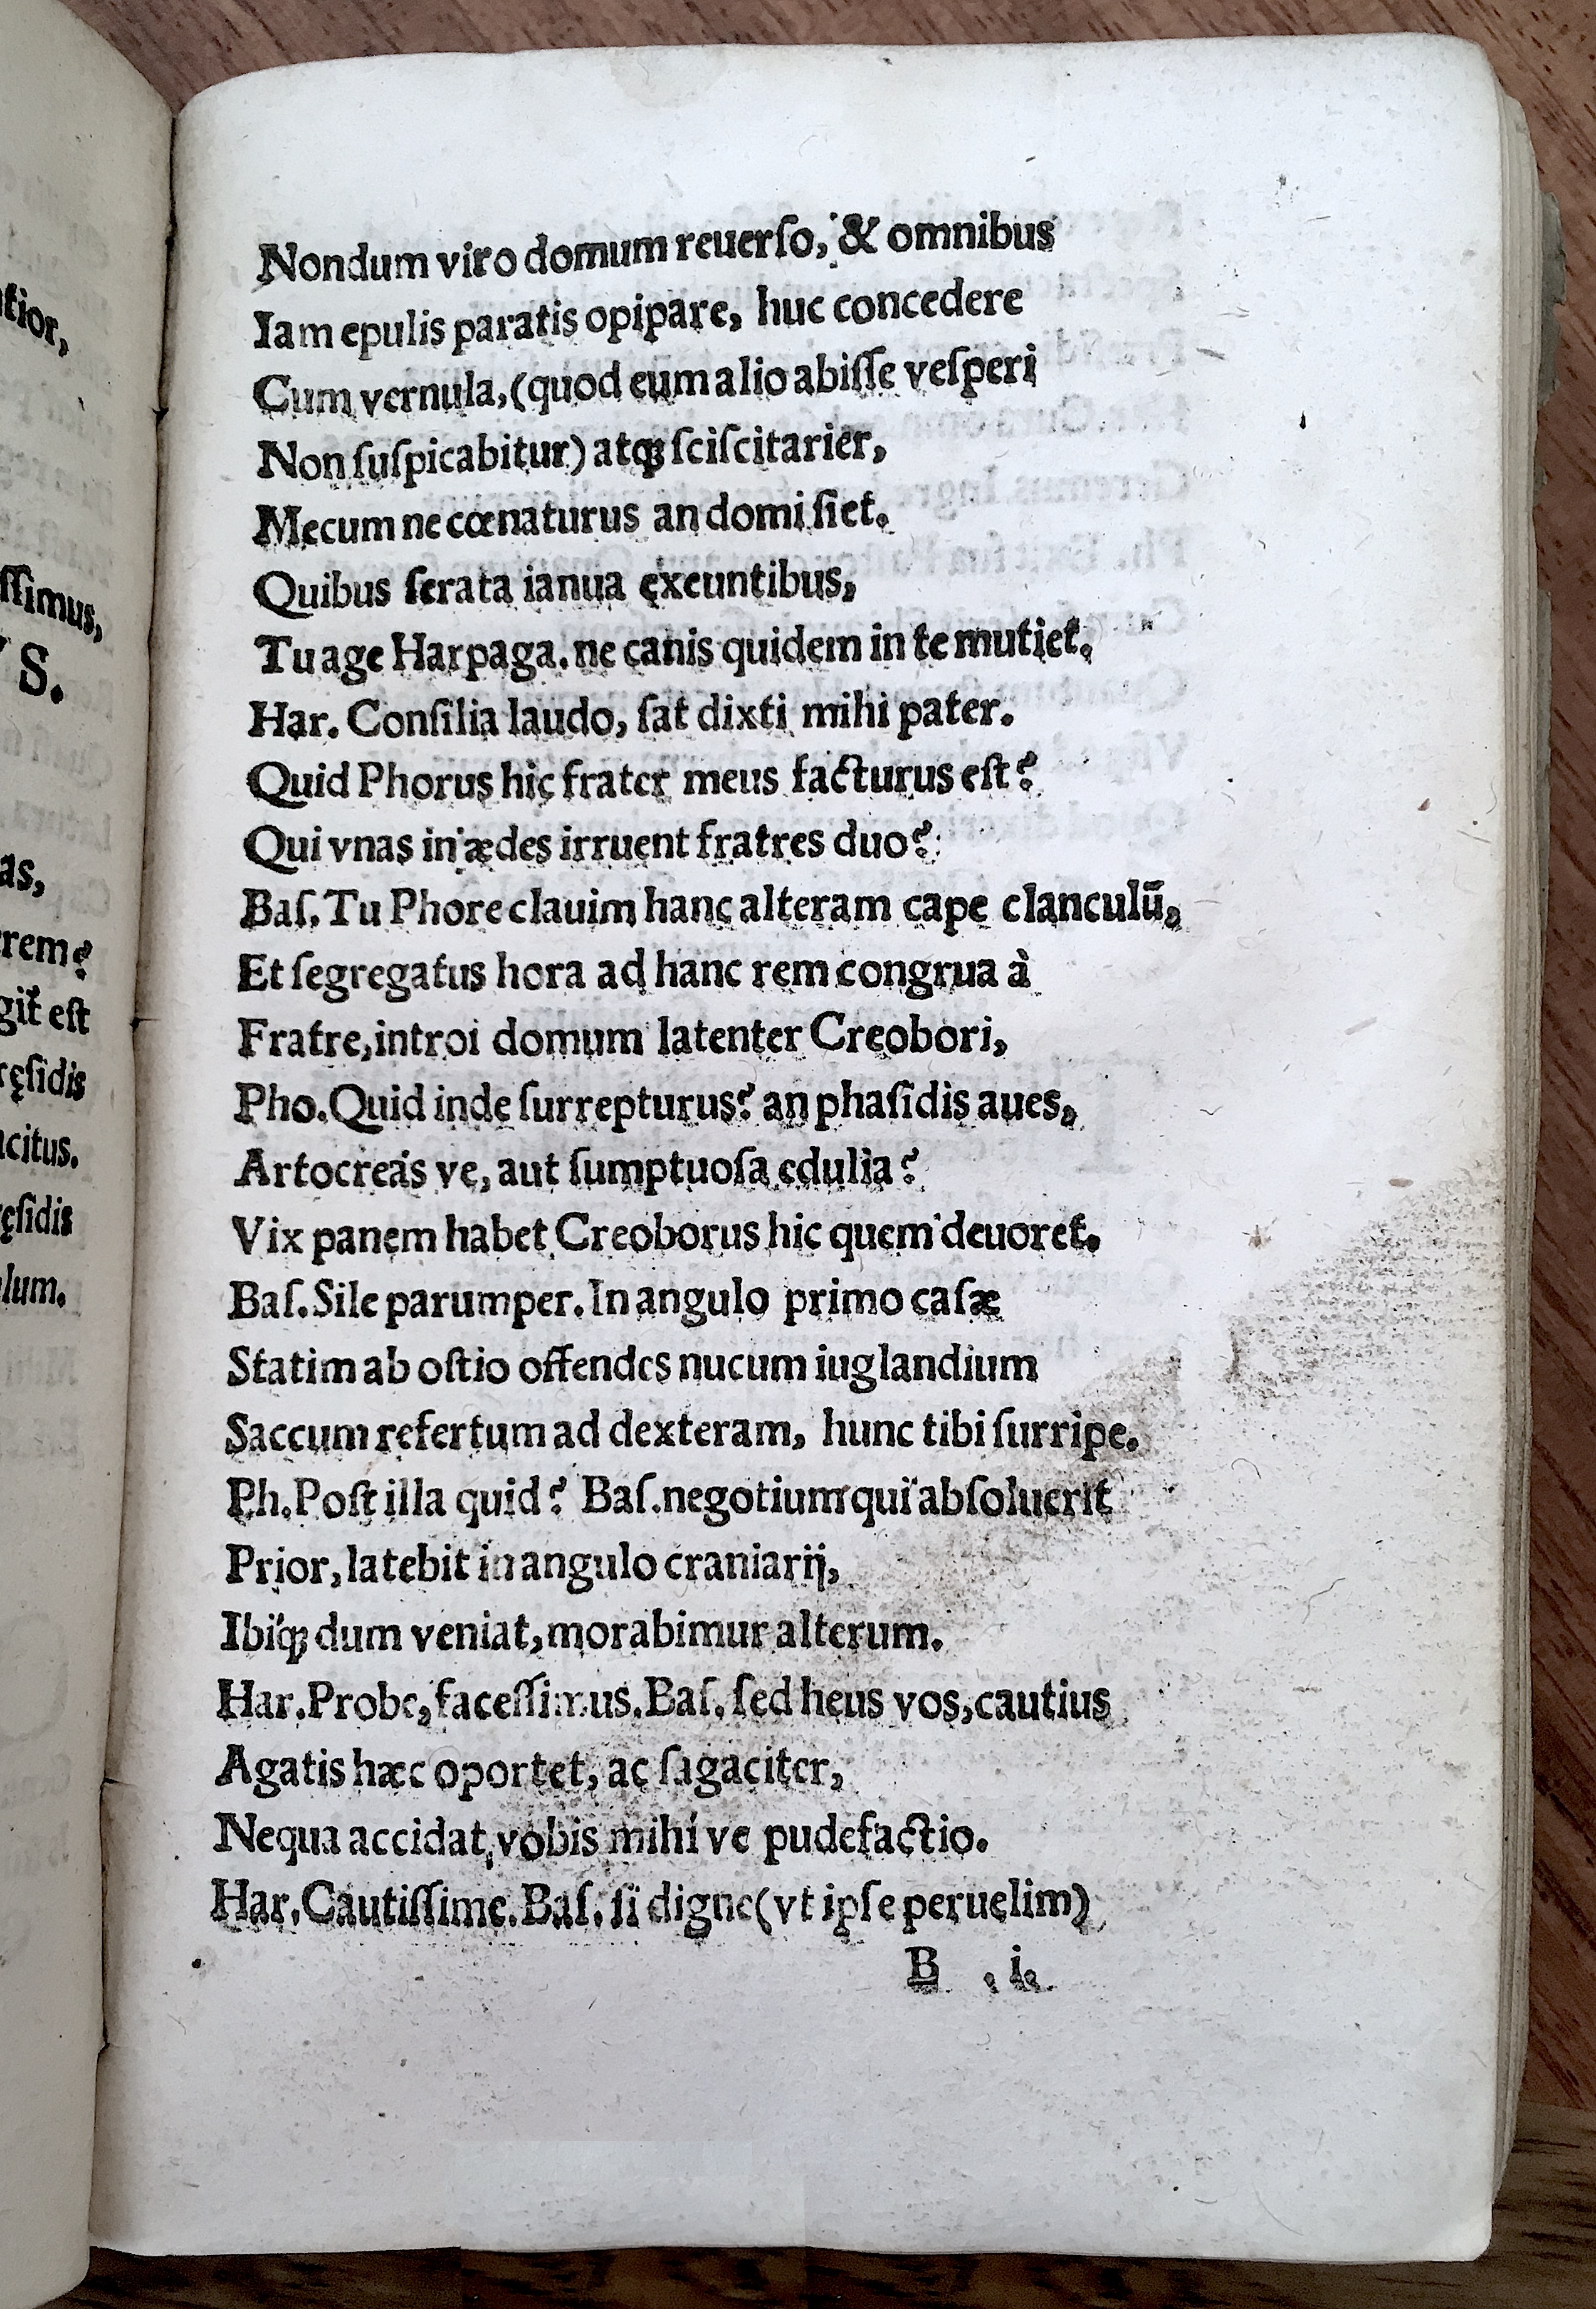 tior,
ſſimus,
S.
as,
rem?
git est
ręſidis
citus.
ęſidis
lum.
Nondum viro domum reuerſo, & omnibus
Iam epulis paratis opipare, huc concedere
Cum vernula, (quod eum alio abiſſe veſperi
Non ſuſpicabitur) atq; ſciſcitarier,
Mecum ne cœnaturus an domi ſiet.
Quibus ſerata ianua exeuntibus,
Tu age Harpaga. ne canis quidem in te mutiet.
Har. Conſilia laudo, ſat dixti mihi pater.
Quid Phorus hic frater meus facturus eſt?
Qui vnas in ædes irruent fratres duo?
Baſ. Tu Phore clauim hanc alteram cape clanculũ,
Et ſegregatus hora ad hanc rem congrua à
Fratre, introi domum latenter Creobori,
Pho. Quid inde ſurrepturus? an phaſidis aues,
Artocreás ve, aut ſumptuoſa edulia?
Vix panem habet Creoborus hic quem deuoret.
Baſ. Sile parumper. In angulo primo caſæ
Statim ab oſtio offendes nucum iuglandium
Saccum refertum ad dexteram, hunc tibi ſurripe.
Ph. Poſt illa quid? Baſ. negotium qui abſoluerit
Prior, latebit in angulo craniarij,
Ibíq; dum veniat, morabimur alterum.
Har. Probe, faceſſimus. Baſ. ſed heus vos, cautius
Agatis hæc oportet, ac ſagaciter,
Nequa accidat vobis mihí ve pudefactio.
Har. Cautiſſime. Baſ. ſi digne (vt ipſe peruelim)
B . i.